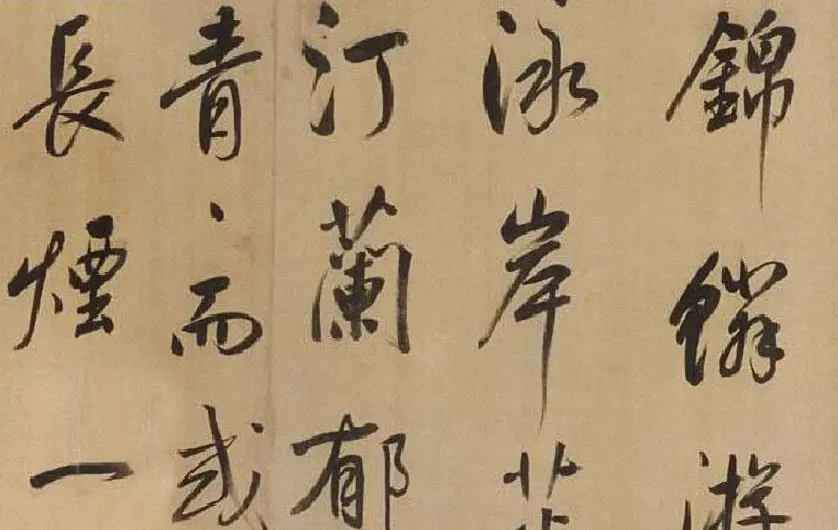 錦鱗游
泳岸芷
汀蘭郁
青、而或
長煙一